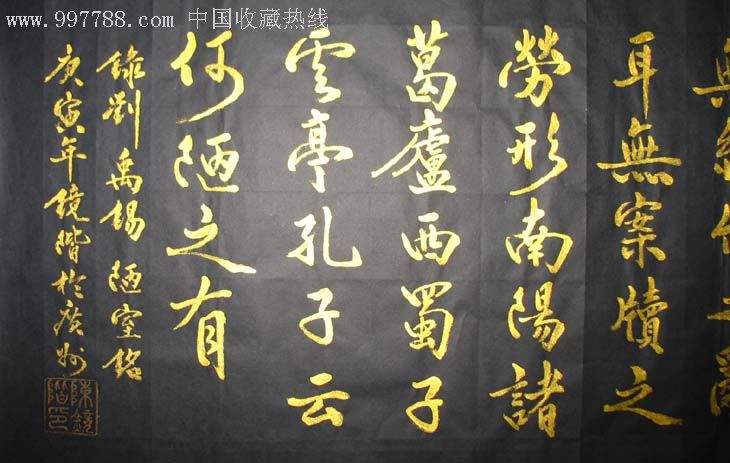 www.997788.com 中国收藏热线
耳無案牘之
勞形南陽諸
葛廬西蜀子
雲亭孔子云
何陋之有
錄劉禹錫陋室銘
庚寅年鏡階於廣州
陳鏡
階印